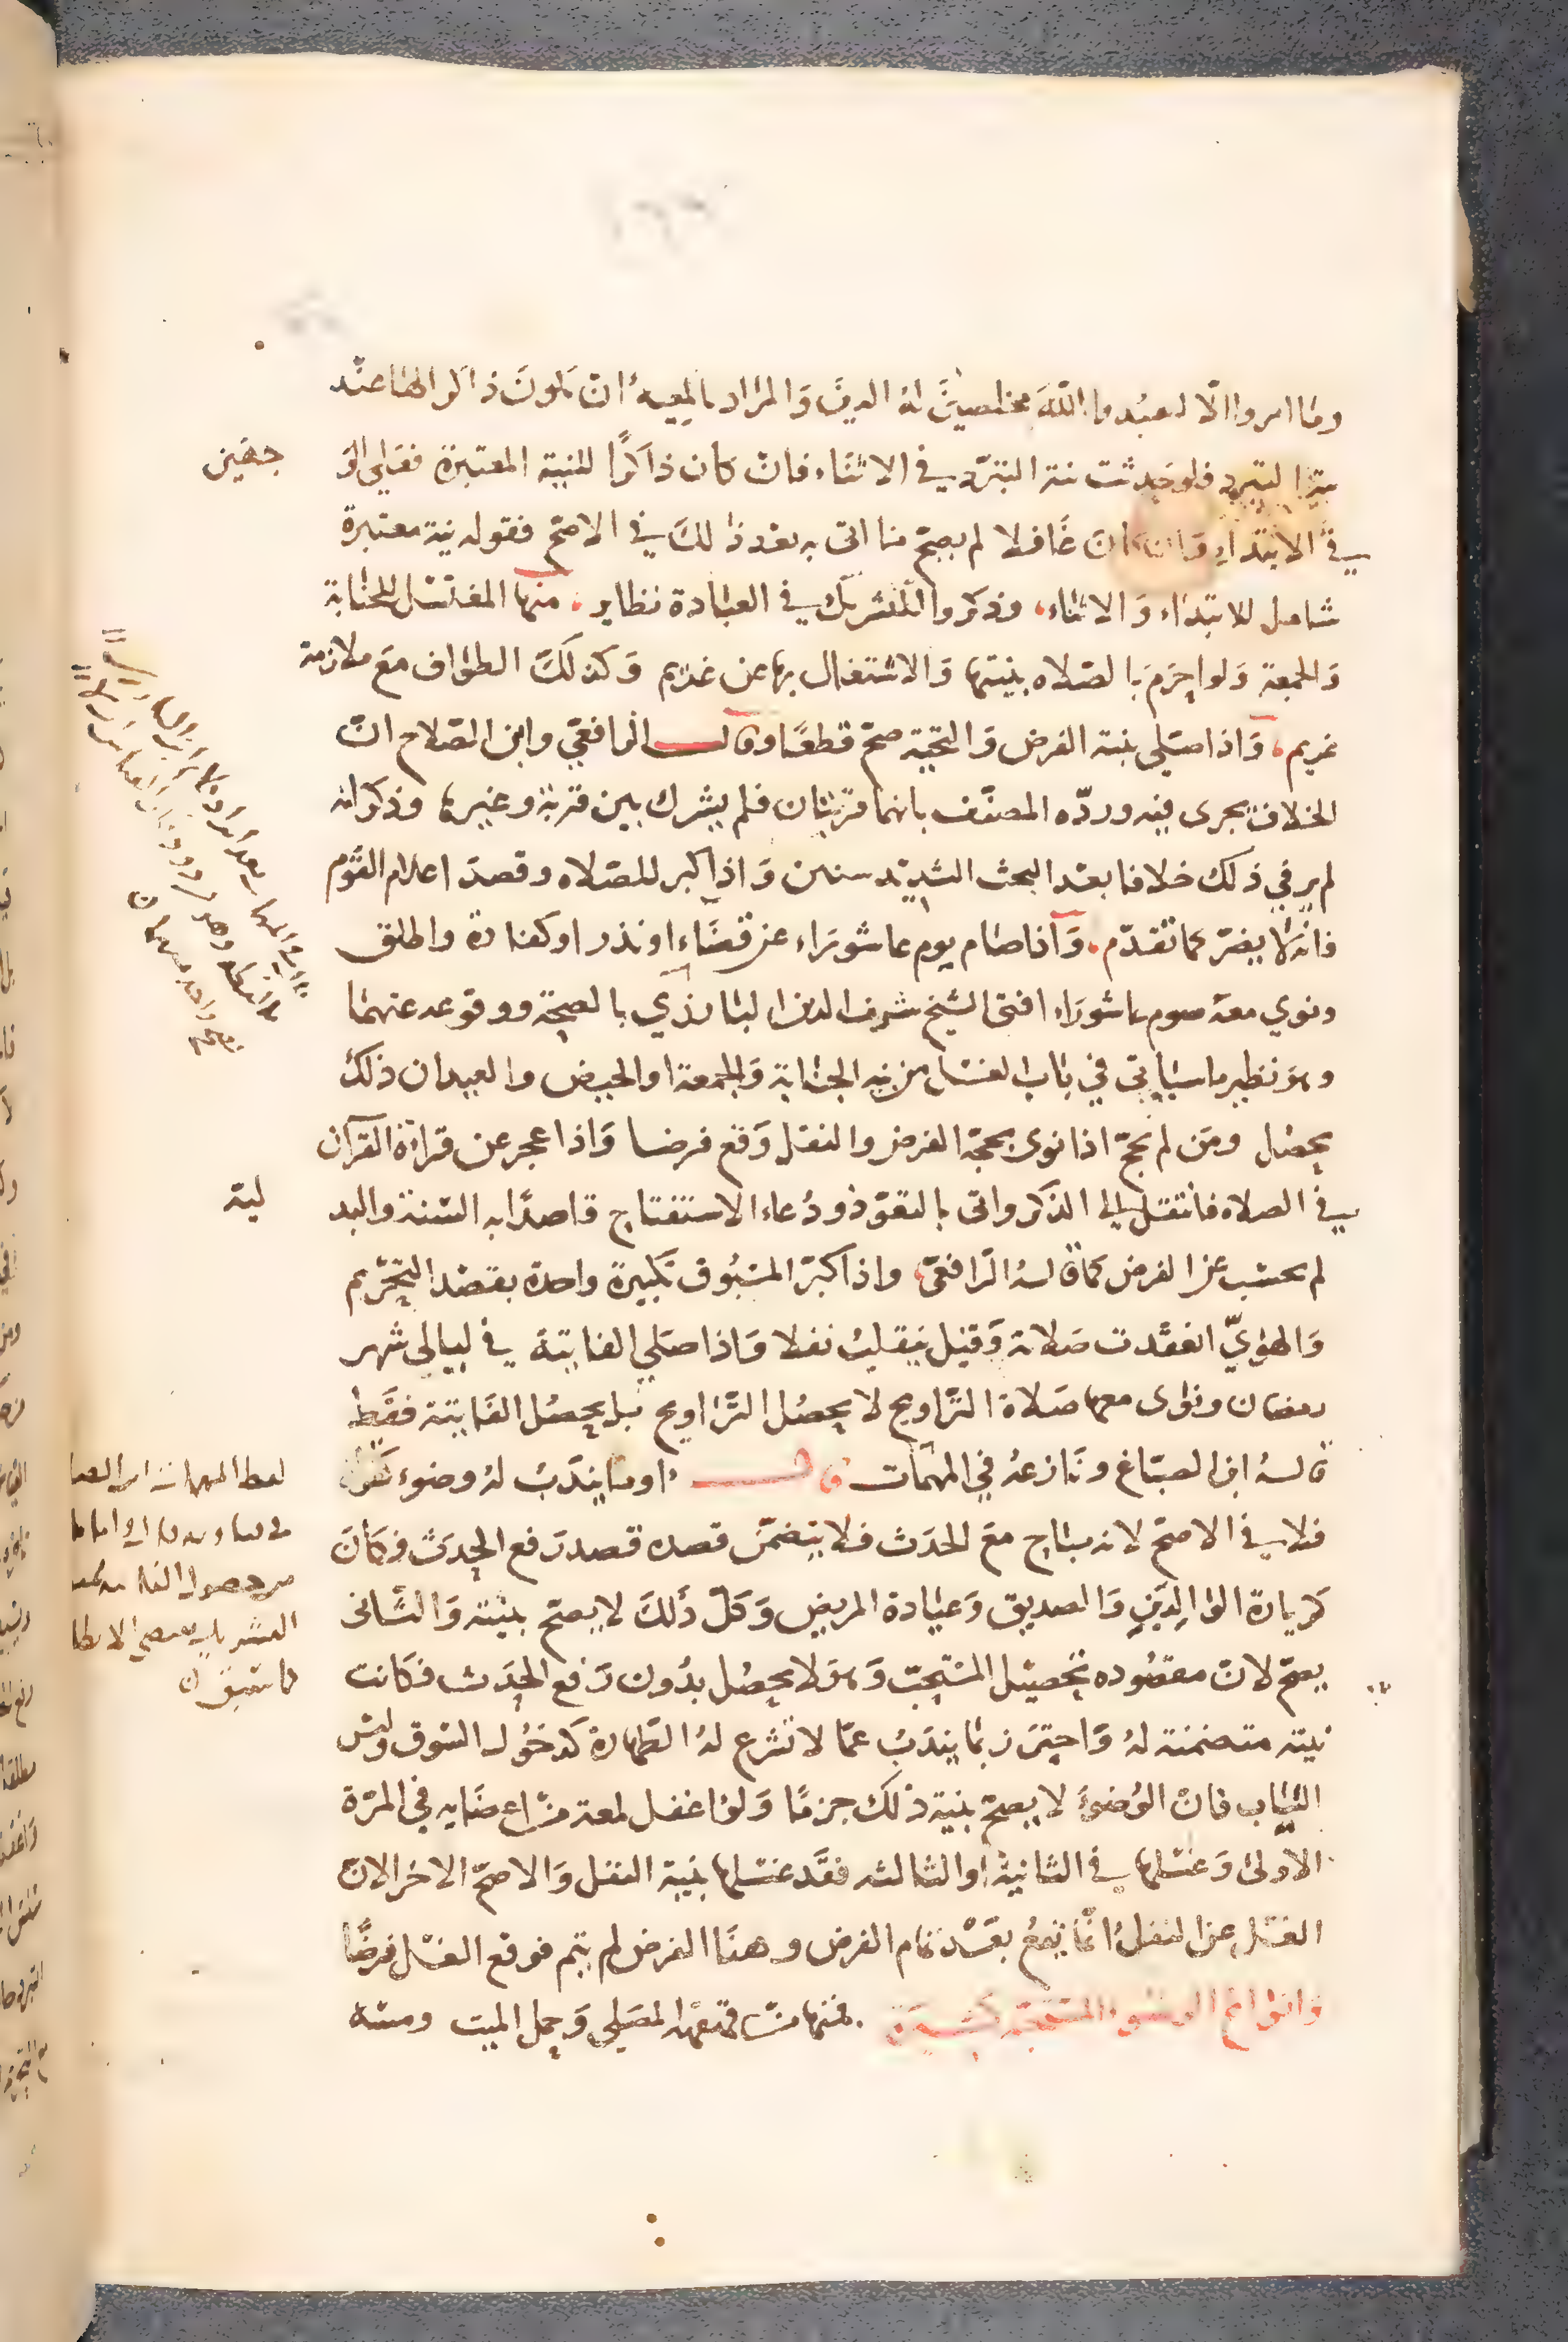 وما امروا الا ليعبدوا الله مخلصين له الدين والمراد بالمعية ان يكون ذاكرا لها عند
نية التبرد فلو حدثت نية التبرد في الاثناء فان كان ذاكرا للنية المعتبرة فعلى الو
جهين
في الابتداء وان كان غافلا لم يصح ما اتى به بعد ذلك في الاصح فقوله نية معتبرة
شامل للابتداء والاثناء، وذكروا للتشريك في العبادة نظاير، منها المغتسل للجنابة
والجمعة ولو احرم بالصلاه بنيتها والاشتغال بها عن غريم وكذلك الطواف مع ملازمة
غريم، واذا صلى بنية الفرض والتحية صح قطعا وقال الرافعي وابن الصلاح ان
الخلاف يجرى فيه ورده المصنف بانهما قربتان فلم يشرك بين قربة وغيرها وذكر انه
لم ير في ذلك خلافا بعد البحث الشديد سنين واذا كبر للصلاه وقصد اعلام القوم
فانه لا يضر كما تقدم، واذا صام يوم عاشوراء عن قضاء او نذر او كفارة واطلق
ونوي معه صوم عاشوراء افتى الشيخ شرف الدين البارزي بالصحة ووقوعه عنهما
وهو نظير ما سياتي في باب الغسل من نية الجنابة والجمعة او الحيض والعيد ان ذلك
يحصل ومن لم يحج اذا نوى بحجة الفرض والنفل وقع فرضا واذا عجز عن قراءة القرآن
في الصلاه فانتقل الى الذكر واتى بالتعوذ ودعاء الاستفتاح قاصدا به السنة والبد
لية
لم يحسب عن الفرض كما قاله الرافعي، واذا كبر المسبوق تكبيرة واحدة بقصد التحريم
والهوي انعقدت صلاته وقيل ينقلب نفلا واذا صلى الفايتة في ليالي شهر
رمضان ونوى معها صلاة التراويح لا يحصل التراويح بل يحصل الفايتة فقط
قاله ابن الصباغ ونازعه في المهمات قال او ما يندب له وضوء كقراءة
فلا في الاصح لانه مباح مع الحدث فلا يتضمن قصده قصد رفع الحدث فكان
كزيارة الوالدين والصديق وعيادة المريض وكل ذلك لا يصح بنيته والثانى
يصح لان مقصوده تحصيل المستحب وهو لا يحصل بدون رفع الحدث فكانت
نيته متضمنة له واحترز بما يندب عما لا تشرع له الطهارة كدخول السوق ولبس
الثياب فان الوضوء لا يصح بنية ذلك جزما ولو اغفل لمعة من اعضايه في المرة
الاولى وغسلها في الثانية او الثالثه فقد غسلها بنية النفل والاصح الاجزا لان
الغسل عن النفل انما يقع بعد تمام الفرض وهنا الفرض لم يتم فوقع الغسل فرضا
وانواع الوضوء المستحبة كثيرة. فمنها من قهقهة المصلى وحمل الميت ومسه